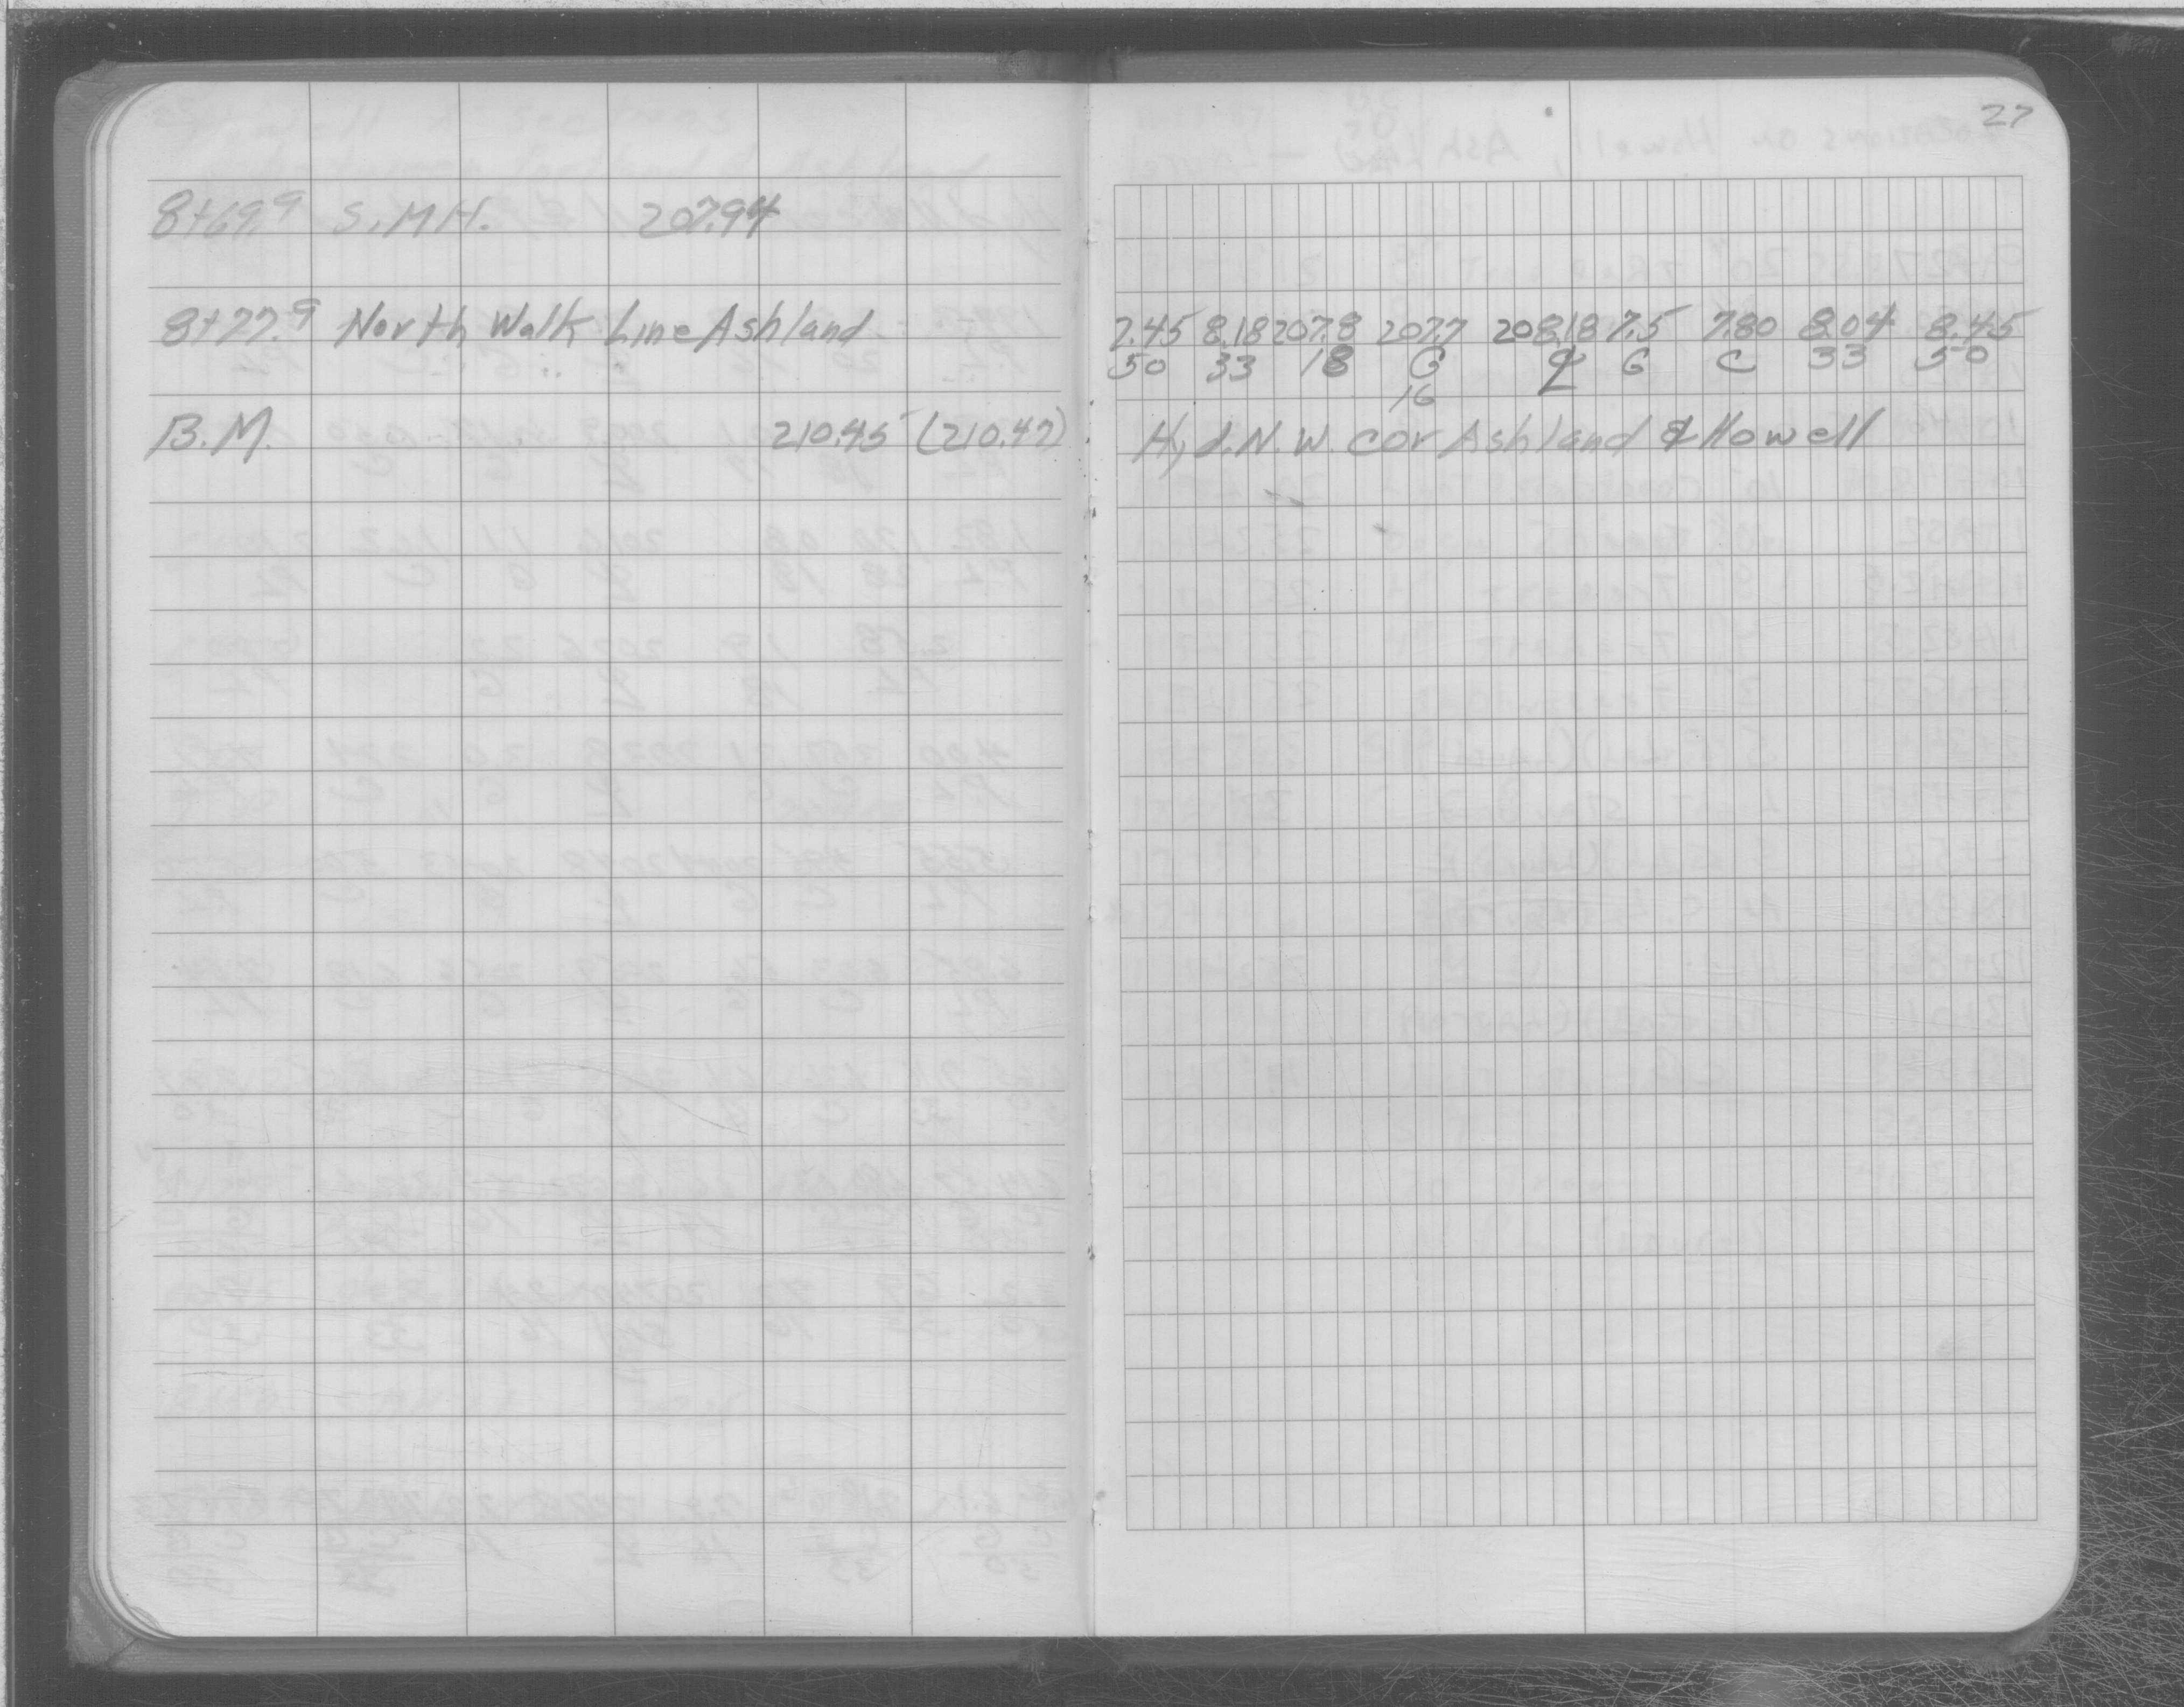 27
8+69.9 S.M.H. 207.94
8+77.9 North Walk Line Ashland 7.45 8.18 207.8 207.7 208.18 7.5 7.80 8.04 8.45
50 33 18 G ℄ G C 33 50
16
B.M. 210.45 (210.47) Hyd. N.W. cor Ashland & Howell